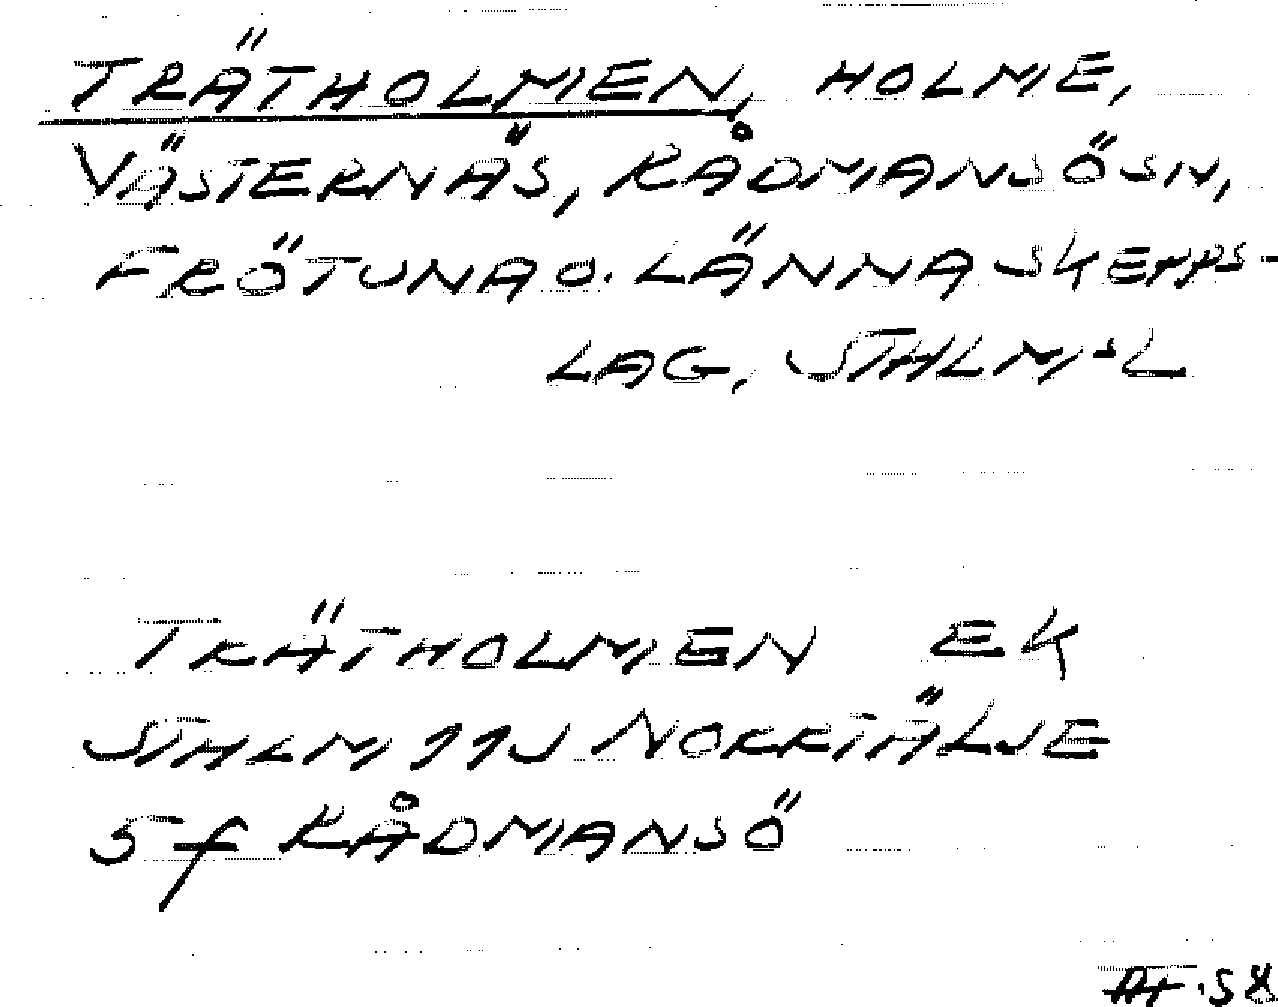 TRÄTHOLMEN, HOLME,
VÄSTERNÄS, RÅDMANSÖ SN,
FRÖTUNA O. LÄNNA SKEPPS-
LAG, STHLMS L
TRÄTHOLMEN EK
STHLM 11J NORRTÄLJE
5f RÅDMANSÖ